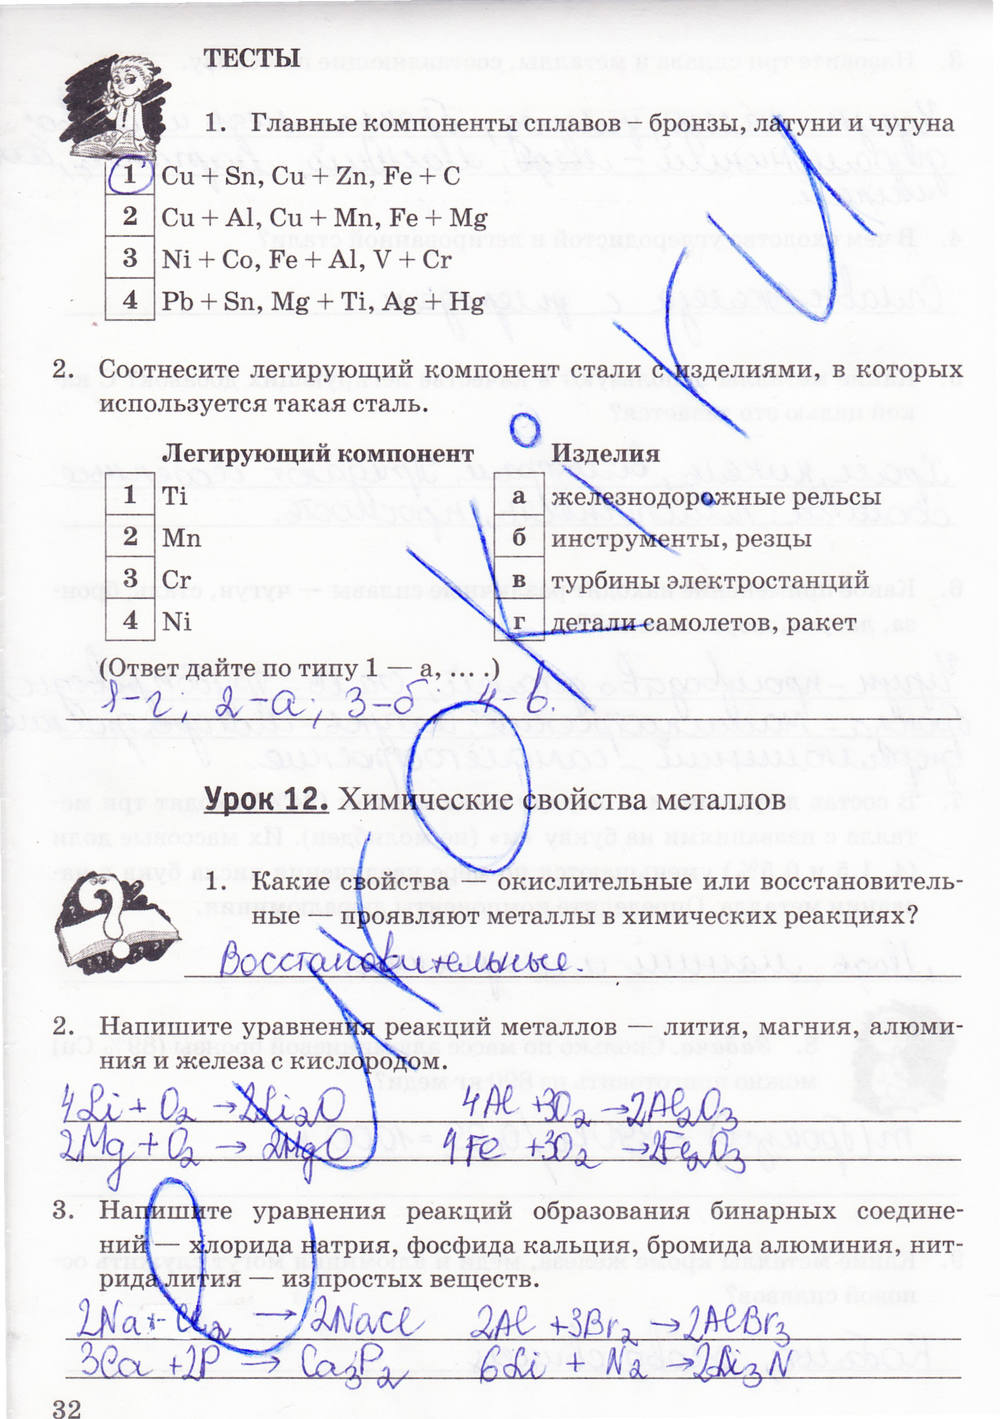 ТЕСТЫ
1. Главные компоненты сплавов – бронзы, латуни и чугуна
1 Cu + Sn, Cu + Zn, Fe + C
2 Cu + Al, Cu + Mn, Fe + Mg
3 Ni + Co, Fe + Al, V + Cr
4 Pb + Sn, Mg + Ti, Ag + Hg
2. Соотнесите легирующий компонент стали с изделиями, в которых
используется такая сталь.
Легирующий компонент Изделия
1 Ti а железнодорожные рельсы
2 Mn б инструменты, резцы
3 Cr в турбины электростанций
4 Ni г детали самолетов, ракет
(Ответ дайте по типу 1 — а, ... .)
1-г, 2-а; 3-б 4-в.
Урок 12. Химические свойства металлов
1. Какие свойства — окислительные или восстановитель-
ные — проявляют металлы в химических реакциях?
Восстановительные.
2. Напишите уравнения реакций металлов — лития, магния, алюми-
ния и железа с кислородом.
4Li + O₂ → 2Li₂O 4Al + 3O₂ → 2Al₂O₃
2Mg + O₂ → 2MgO 4Fe + 3O₂ → 2Fe₂O₃
3. Напишите уравнения реакций образования бинарных соедине-
ний — хлорида натрия, фосфида кальция, бромида алюминия, нит-
рида лития — из простых веществ.
2Na + Cl₂ → 2NaCl 2Al + 3Br₂ → 2AlBr₃
3Ca + 2P → Ca₃P₂ 6Li + N₂ → 2Li₃N
32